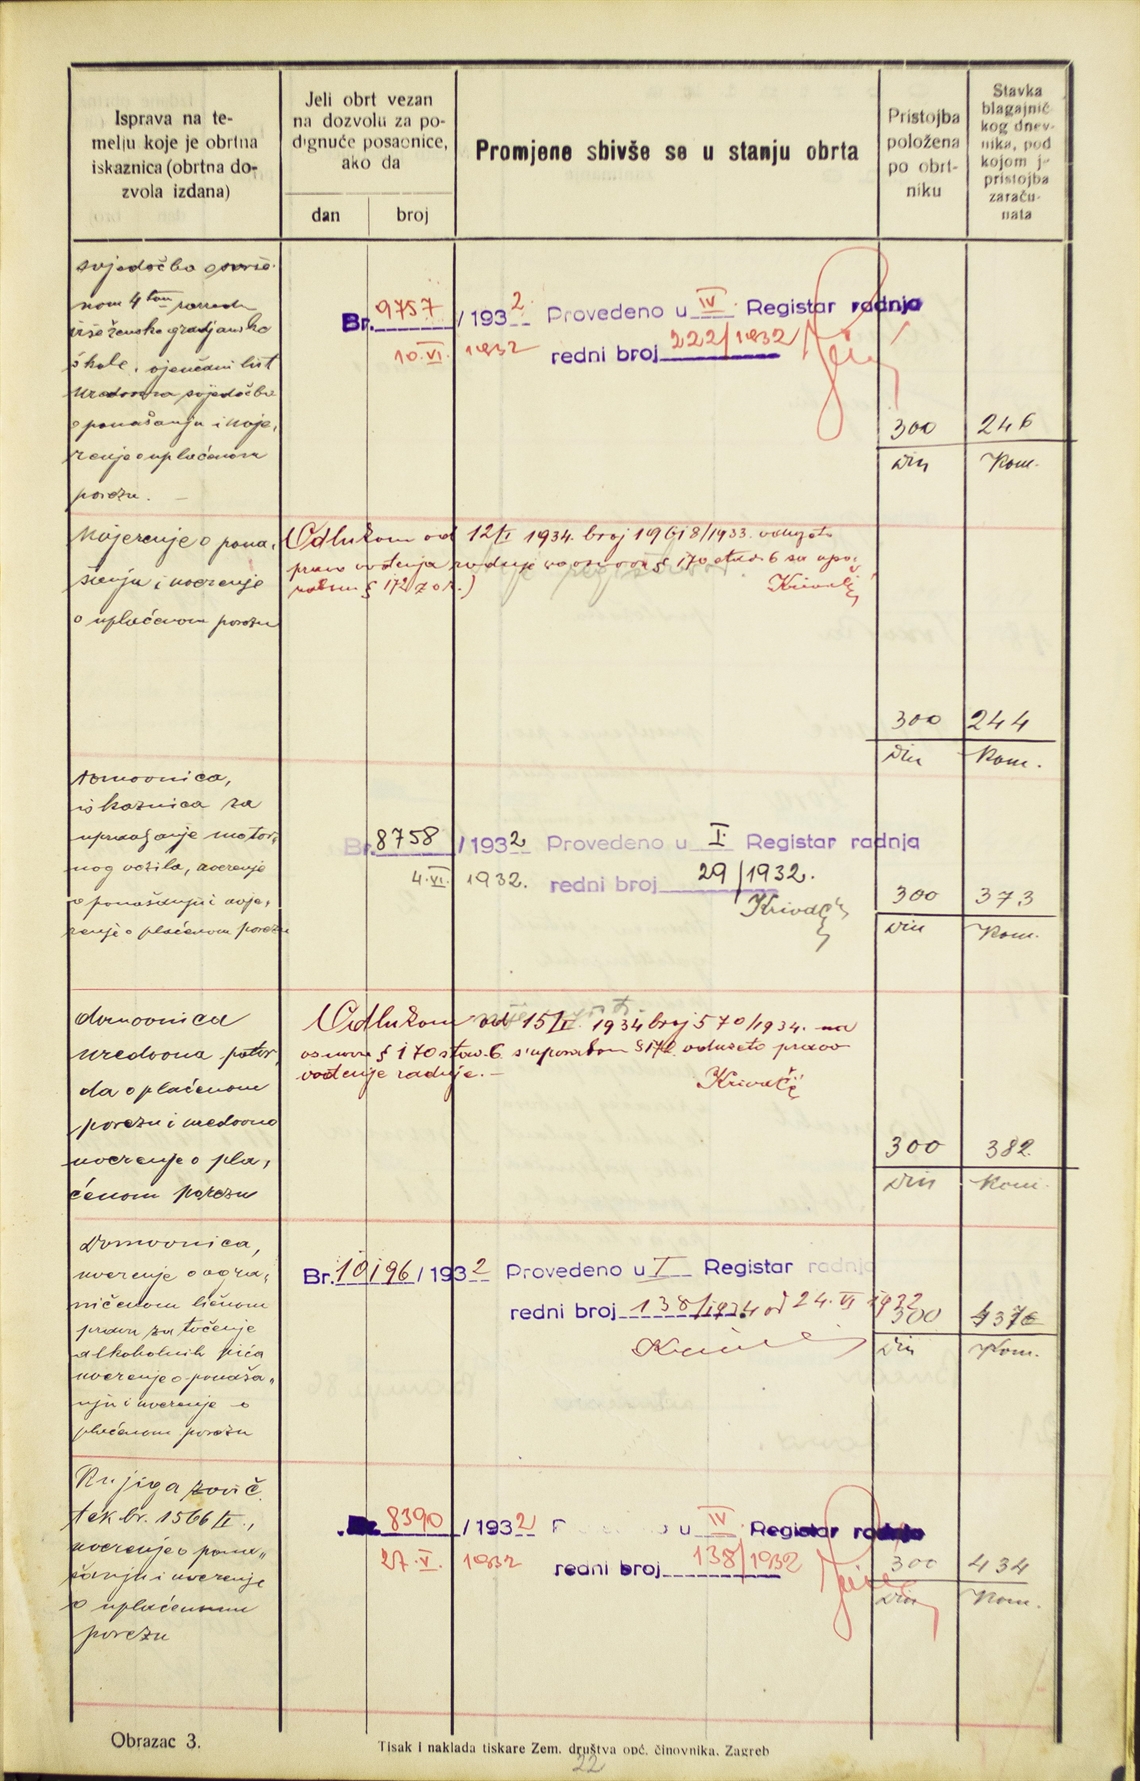 Isprava na te-
melju koje je obrtna
iskaznica (obrtna do-
zvola izdana)
Jeli obrt vezan
na dozvolu za po-
dignuće posaonice,
ako da
dan
broj
Promjene sbivše se u stanju obrta
Pristojba
položena
po obrt-
niku
Stavka
blagajnič
kog dnev-
nika, pod
kojom je
pristojba
zaraču-
nata
svjedočba o svrše-
nom 4 tom razredu
više ženske gradjanske
škole, vjenčani list
uredovna svjedočba
o ponašanju i uvje,
renje o uplaćenom
porezu. -
Br. 9757 / 1932 Provedeno u IV. Registar radnja
10. VI. 1932 redni broj 222/1932
300 246
Din Kom.
Uvjerenje o pona,
šanju i uverenje
o uplaćenom porezu
Odlukom od 12/I 1934. broj 19618/1933. oduzeto
pravo vodjenja radnje na osnovu § 170 stav. 6 sa upo,
rabom § 172 z o r.)
Krivačić
300 244
Din Kom.
Domovnica,
iskaznica za
upravljanje motor,
nog vozila, uverenje
o ponašanju i uvje,
renje o plaćenom porezu
Br. 8758 / 1932 Provedeno u I. Registar radnja
4. VI. 1932. redni broj 29/1932.
Krivačić
300 373
Din Kom.
domovnica
uredovna potvr,
da o plaćenom
porezu i uredovno
uverenje o pla,
ćenom porezu
Odlukom od 15/II. 1934 broj 570/1934. na
osnovu § 170 stav. 6 s uporabom § 172. oduzeto pravo
vodjenje radnje. -
Krivačić
300 382
Din Kom.
Domovnica,
uverenje o ogra,
ničenom ličnom
pravu za točenje
alkoholnih pića
uverenje o ponaša,,
nju i uverenje o
plaćenom porezu
Br. 10196 / 1932 Provedeno u I Registar radnja
redni broj 138/1934 od 24. VI 1932
300
Din Kom.
Knjiga zavič.
tek br. 1566 II.,
uverenje o pona,,
šanju i uverenje
o uplaćenom
porezu
Br. 8390 / 1932 Provedeno u IV Registar radnja
27. V. 1932 redni broj 138/1932
300 434
Din Kom.
Obrazac 3.
Tisak i naklada tiskare Zem. društva opć. činovnika. Zagreb
22